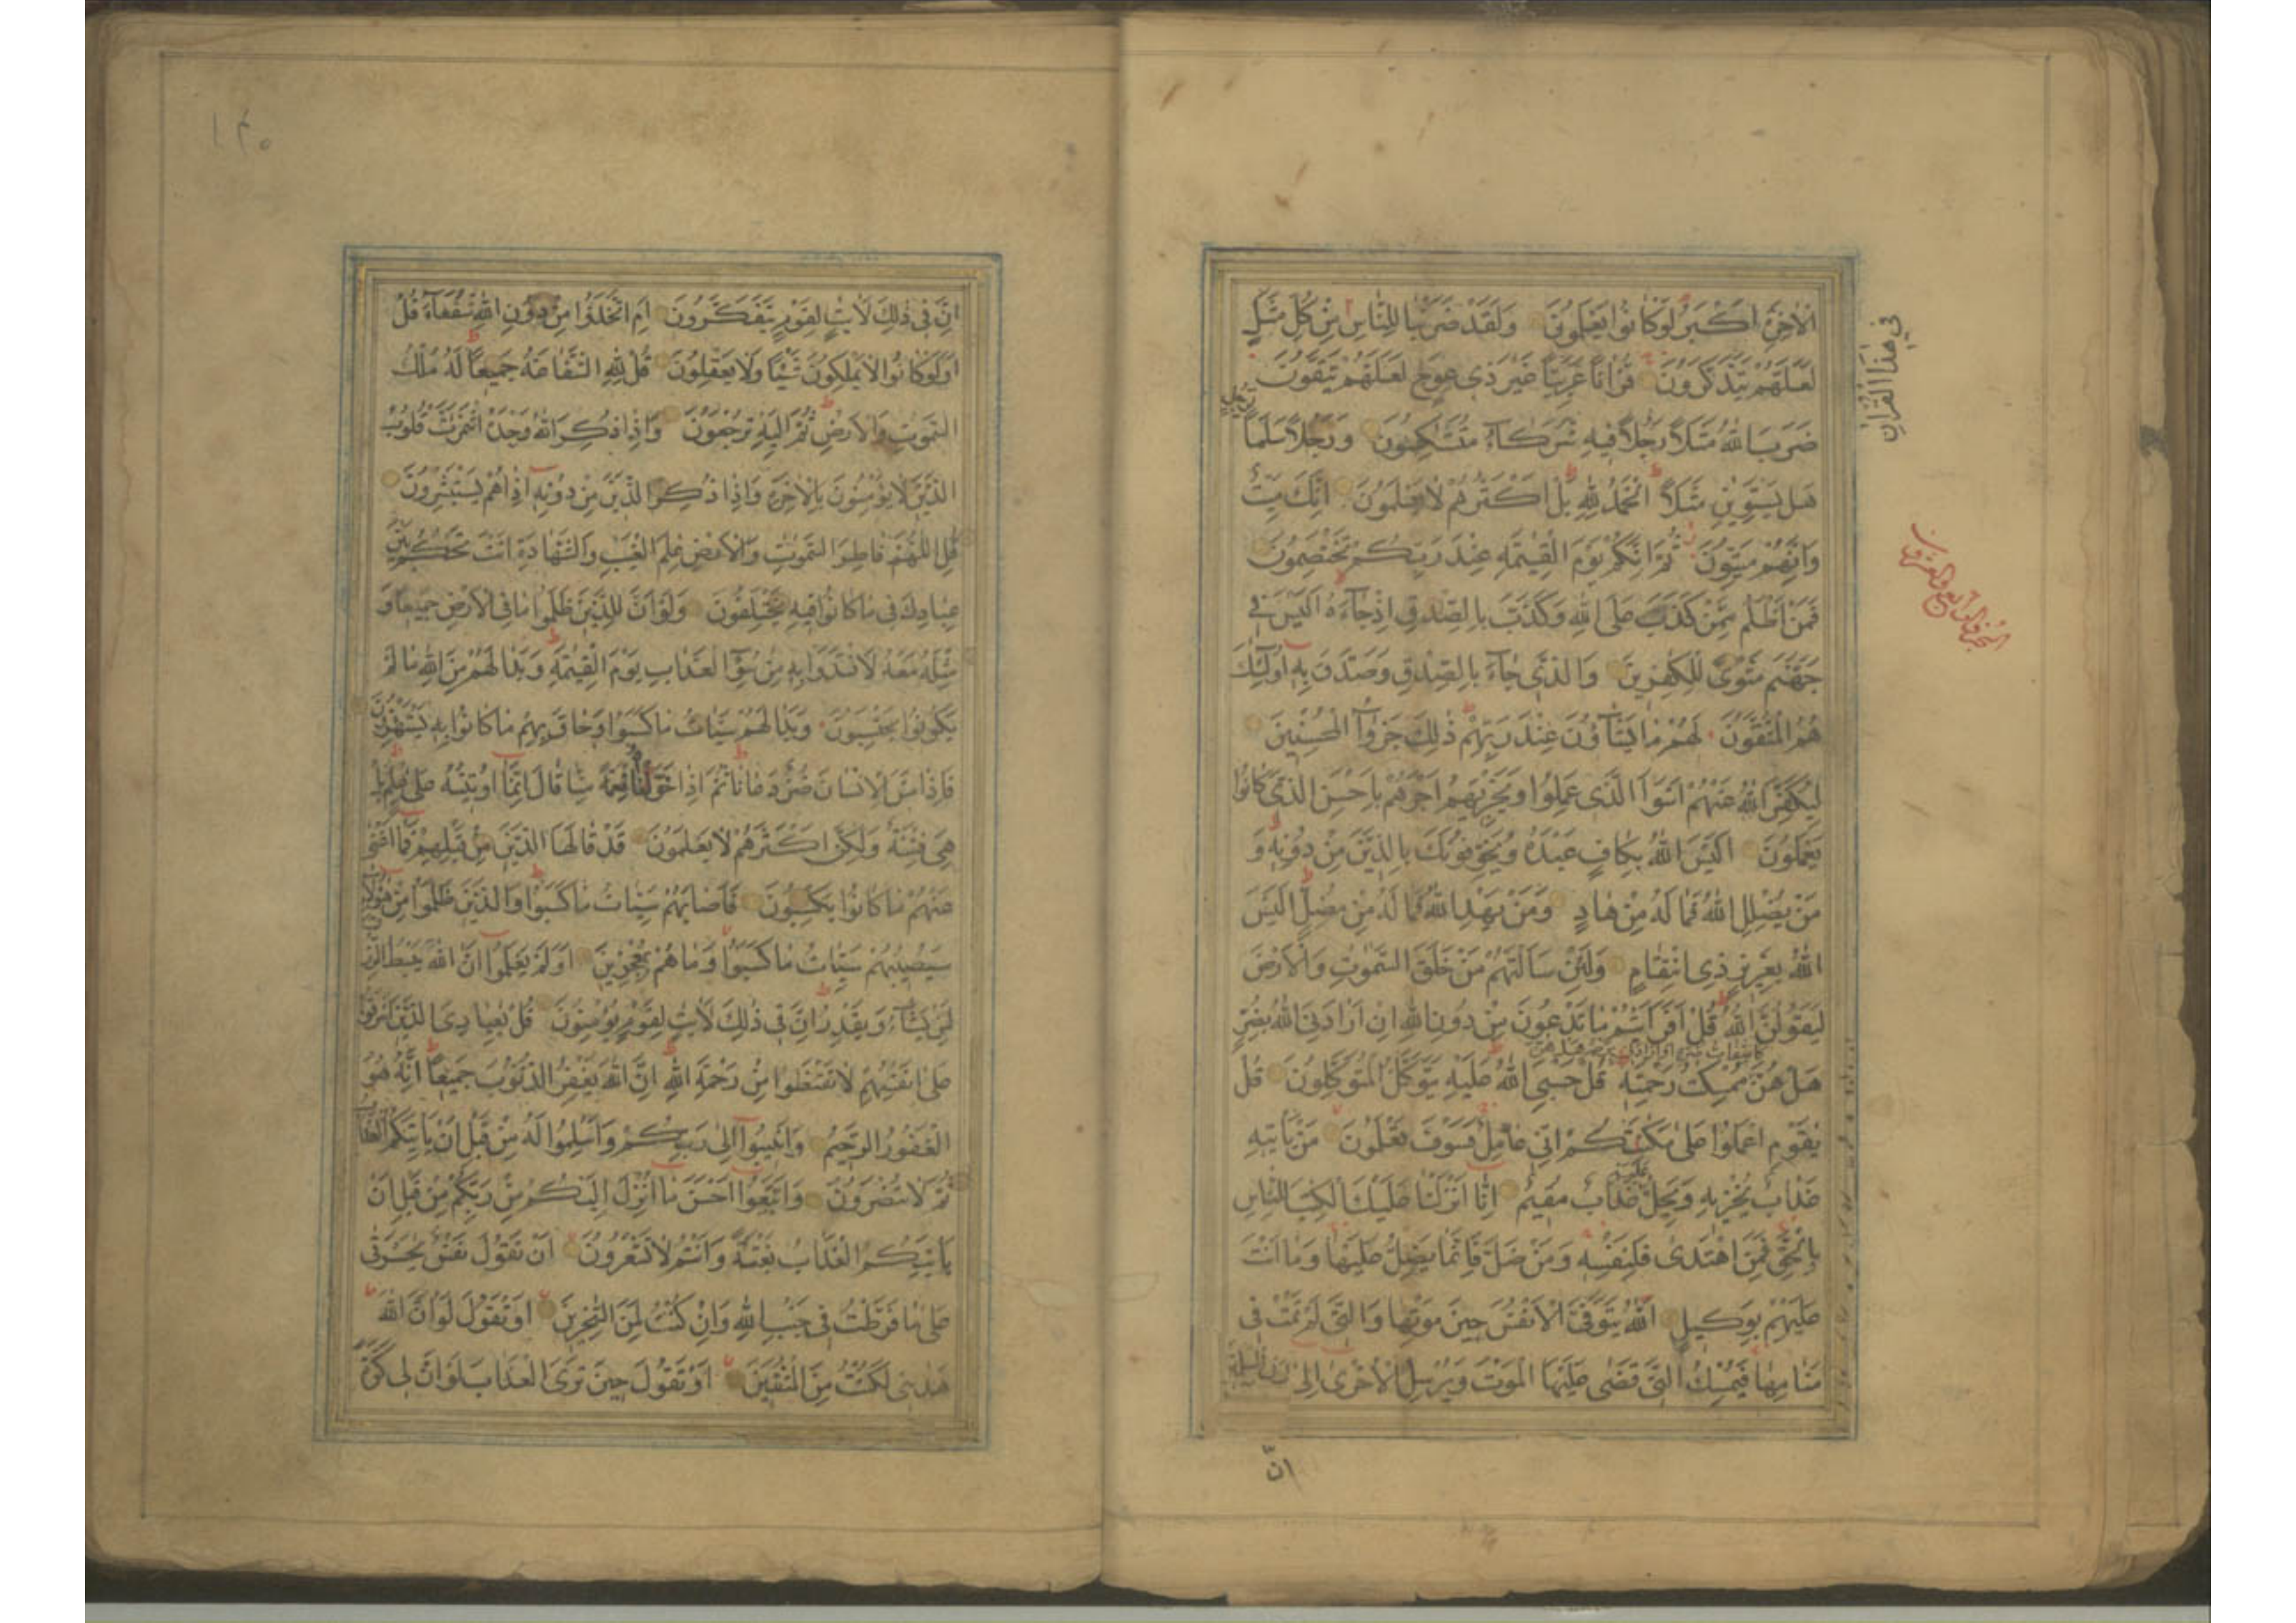 الْاٰخِرَةِ اَكْبَرُ لَوْ كَانُوا يَعْلَمُونَ وَلَقَدْ ضَرَبْنَا لِلنَّاسِ مِنْ كُلِّ مَثَلٍ
فِي هٰذَا الْقُرْاٰنِ
لَعَلَّهُمْ يَتَذَكَّرُونَ قُرْاٰنًا عَرَبِيًّا غَيْرَ ذِي عِوَجٍ لَعَلَّهُمْ يَتَّقُونَ
ضَرَبَ اللّٰهُ مَثَلًا رَجُلًا فِيهِ شُرَكَاءُ مُتَشَاكِسُونَ وَرَجُلًا سَلَمًا لِرَجُلٍ
هَلْ يَسْتَوِيٰنِ مَثَلًا اَلْحَمْدُ لِلّٰهِ بَلْ اَكْثَرُهُمْ لَا يَعْلَمُونَ اِنَّكَ مَيِّتٌ
وَاِنَّهُمْ مَيِّتُونَ ثُمَّ اِنَّكُمْ يَوْمَ الْقِيٰمَةِ عِنْدَ رَبِّكُمْ تَخْتَصِمُونَ
فَمَنْ اَظْلَمُ مِمَّنْ كَذَبَ عَلَى اللّٰهِ وَكَذَّبَ بِالصِّدْقِ اِذْ جَاءَهُ اَلَيْسَ فِي
جَهَنَّمَ مَثْوًى لِلْكٰفِرِينَ وَالَّذِي جَاءَ بِالصِّدْقِ وَصَدَّقَ بِهِ اُولٰئِكَ
هُمُ الْمُتَّقُونَ لَهُمْ مَا يَشَاؤُنَ عِنْدَ رَبِّهِمْ ذٰلِكَ جَزٰؤُا الْمُحْسِنِينَ
لِيُكَفِّرَ اللّٰهُ عَنْهُمْ اَسْوَاَ الَّذِي عَمِلُوا وَيَجْزِيَهُمْ اَجْرَهُمْ بِاَحْسَنِ الَّذِي كَانُوا
يَعْمَلُونَ اَلَيْسَ اللّٰهُ بِكَافٍ عَبْدَهُ وَيُخَوِّفُونَكَ بِالَّذِينَ مِنْ دُونِهِ وَ
مَنْ يُضْلِلِ اللّٰهُ فَمَا لَهُ مِنْ هَادٍ وَمَنْ يَهْدِ اللّٰهُ فَمَا لَهُ مِنْ مُضِلٍّ اَلَيْسَ
اللّٰهُ بِعَزِيزٍ ذِي انْتِقَامٍ وَلَئِنْ سَاَلْتَهُمْ مَنْ خَلَقَ السَّمٰوٰتِ وَالْاَرْضَ
لَيَقُولُنَّ اللّٰهُ قُلْ اَفَرَاَيْتُمْ مَا تَدْعُونَ مِنْ دُونِ اللّٰهِ اِنْ اَرَادَنِيَ اللّٰهُ بِضُرٍّ
هَلْ هُنَّ
هَلْ هُنَّ مُمْسِكٰتُ رَحْمَتِهِ قُلْ حَسْبِيَ اللّٰهُ عَلَيْهِ يَتَوَكَّلُ الْمُتَوَكِّلُونَ قُلْ
يٰقَوْمِ اعْمَلُوا عَلٰى مَكَانَتِكُمْ اِنِّي عَامِلٌ فَسَوْفَ تَعْلَمُونَ مَنْ يَاْتِيهِ
عَذَابٌ يُخْزِيهِ وَيَحِلُّ عَلَيْهِ عَذَابٌ مُقِيمٌ اِنَّا اَنْزَلْنَا عَلَيْكَ الْكِتٰبَ لِلنَّاسِ
بِالْحَقِّ فَمَنِ اهْتَدٰى فَلِنَفْسِهِ وَمَنْ ضَلَّ فَاِنَّمَا يَضِلُّ عَلَيْهَا وَمَا اَنْتَ
عَلَيْهِمْ بِوَكِيلٍ اَللّٰهُ يَتَوَفَّى الْاَنْفُسَ حِينَ مَوْتِهَا وَالَّتِي لَمْ تَمُتْ فِي
مَنَامِهَا فَيُمْسِكُ الَّتِي قَضٰى عَلَيْهَا الْمَوْتَ وَيُرْسِلُ الْاُخْرٰى اِلٰى
اِنَّ
١٤٠
اِنَّ فِي ذٰلِكَ لَاٰيٰتٍ لِقَوْمٍ يَتَفَكَّرُونَ اَمِ اتَّخَذُوا مِنْ دُونِ اللّٰهِ شُفَعَاءَ قُلْ
اَوَلَوْ كَانُوا لَا يَمْلِكُونَ شَيْئًا وَلَا يَعْقِلُونَ قُلْ لِلّٰهِ الشَّفَاعَةُ جَمِيعًا لَهُ مُلْكُ
السَّمٰوٰتِ وَالْاَرْضِ ثُمَّ اِلَيْهِ تُرْجَعُونَ وَاِذَا ذُكِرَ اللّٰهُ وَحْدَهُ اشْمَاَزَّتْ قُلُوبُ
الَّذِينَ لَا يُؤْمِنُونَ بِالْاٰخِرَةِ وَاِذَا ذُكِرَ الَّذِينَ مِنْ دُونِهِ اِذَا هُمْ يَسْتَبْشِرُونَ
قُلِ اللّٰهُمَّ فَاطِرَ السَّمٰوٰتِ وَالْاَرْضِ عٰلِمَ الْغَيْبِ وَالشَّهَادَةِ اَنْتَ تَحْكُمُ بَيْنَ
عِبَادِكَ فِي مَا كَانُوا فِيهِ يَخْتَلِفُونَ وَلَوْ اَنَّ لِلَّذِينَ ظَلَمُوا مَا فِي الْاَرْضِ جَمِيعًا وَ
مِثْلَهُ مَعَهُ لَافْتَدَوْا بِهِ مِنْ سُوءِ الْعَذَابِ يَوْمَ الْقِيٰمَةِ وَبَدَا لَهُمْ مِنَ اللّٰهِ مَا لَمْ
يَكُونُوا يَحْتَسِبُونَ وَبَدَا لَهُمْ سَيِّاٰتُ مَا كَسَبُوا وَحَاقَ بِهِمْ مَا كَانُوا بِهِ يَسْتَهْزِؤُنَ
فَاِذَا مَسَّ الْاِنْسَانَ ضُرٌّ دَعَانَا ثُمَّ اِذَا خَوَّلْنَاهُ نِعْمَةً مِنَّا قَالَ اِنَّمَا اُوتِيتُهُ عَلٰى عِلْمٍ بَلْ
هِيَ فِتْنَةٌ وَلٰكِنَّ اَكْثَرَهُمْ لَا يَعْلَمُونَ قَدْ قَالَهَا الَّذِينَ مِنْ قَبْلِهِمْ فَمَا اَغْنٰى
عَنْهُمْ مَا كَانُوا يَكْسِبُونَ فَاَصَابَهُمْ سَيِّاٰتُ مَا كَسَبُوا وَالَّذِينَ ظَلَمُوا مِنْ هٰؤُلَاءِ
سَيُصِيبُهُمْ سَيِّاٰتُ مَا كَسَبُوا وَمَا هُمْ بِمُعْجِزِينَ اَوَلَمْ يَعْلَمُوا اَنَّ اللّٰهَ يَبْسُطُ الرِّزْقَ
لِمَنْ يَشَاءُ وَيَقْدِرُ اِنَّ فِي ذٰلِكَ لَاٰيٰتٍ لِقَوْمٍ يُؤْمِنُونَ قُلْ يٰعِبَادِيَ الَّذِينَ اَسْرَفُوا
عَلٰى اَنْفُسِهِمْ لَا تَقْنَطُوا مِنْ رَحْمَةِ اللّٰهِ اِنَّ اللّٰهَ يَغْفِرُ الذُّنُوبَ جَمِيعًا اِنَّهُ هُوَ
الْغَفُورُ الرَّحِيمُ وَاَنِيبُوا اِلٰى رَبِّكُمْ وَاَسْلِمُوا لَهُ مِنْ قَبْلِ اَنْ يَاْتِيَكُمُ الْعَذَابُ
ثُمَّ لَا تُنْصَرُونَ وَاتَّبِعُوا اَحْسَنَ مَا اُنْزِلَ اِلَيْكُمْ مِنْ رَبِّكُمْ مِنْ قَبْلِ اَنْ
يَاْتِيَكُمُ الْعَذَابُ بَغْتَةً وَاَنْتُمْ لَا تَشْعُرُونَ اَنْ تَقُولَ نَفْسٌ يٰحَسْرَتٰى
عَلٰى مَا فَرَّطْتُ فِي جَنْبِ اللّٰهِ وَاِنْ كُنْتُ لَمِنَ السّٰخِرِينَ اَوْ تَقُولَ لَوْ اَنَّ اللّٰهَ
هَدٰينِي لَكُنْتُ مِنَ الْمُتَّقِينَ اَوْ تَقُولَ حِينَ تَرَى الْعَذَابَ لَوْ اَنَّ لِي كَرَّةً